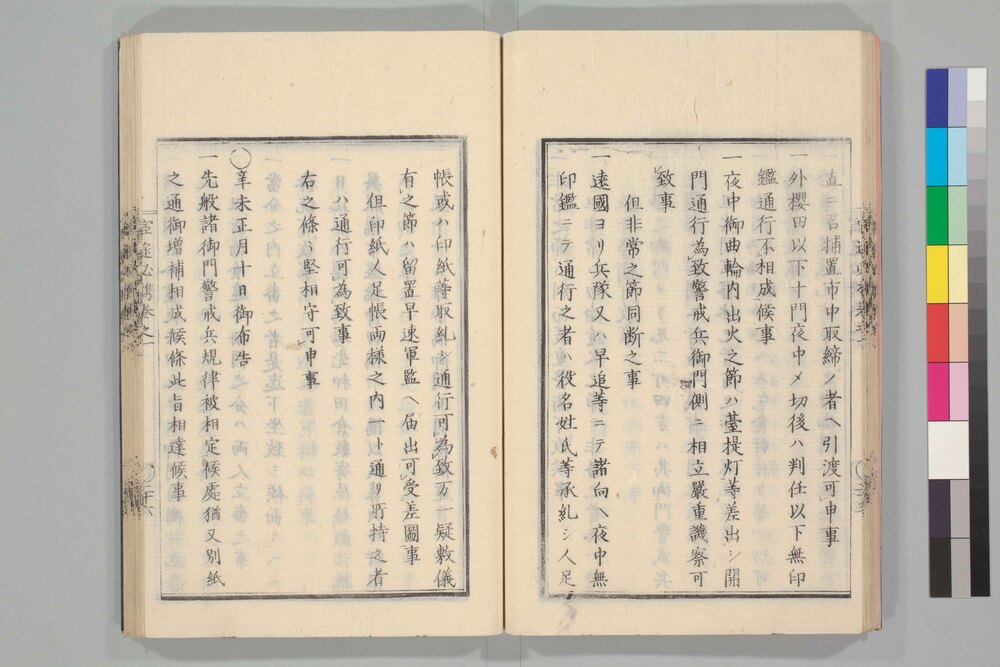 直ニ召捕置市中取締ノ者ヘ引渡可申事
一外櫻田以下十門夜中〆切後ハ判任以下無印
鑑通行不相成候事
一夜中御曲輪内出火之節ハ臺提灯等差出シ開
門通行為致警戒兵御門側ニ相立嚴重譏察可
致事
但非常之節同断之事
一遠國ヨリ兵隊又ハ早追等ニテ諸向ヘ夜中無
印鑑ニテ通行之者ハ役名姓氏等承糺シ人足
帳或ハ印紙等取糺シ通行可為致万一疑敷儀
有之節ハ留置早速軍監ヘ届出可受差圖事
但印紙人足帳両様之内擶ト通リ所持之者
ハ通行可為致事
右之條ハ堅相守可申事
○辛未正月十日御布告
一先般諸御門警戒兵規律被相定候處猶又別紙
之通御増補相成候條此旨相達候事